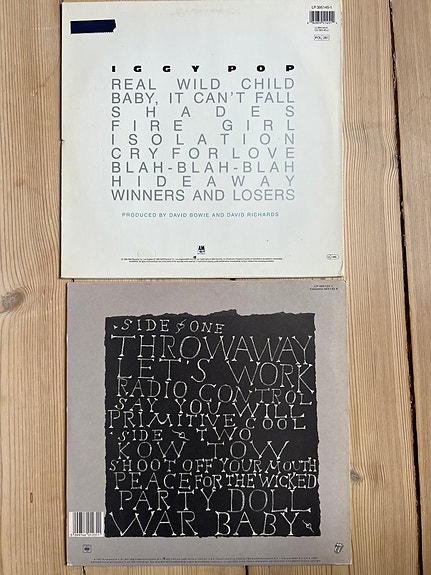 LP 395145-1
POL 281
IGGY POP
REAL WILD CHILD
BABY, IT CAN'T FALL
SHADES
FIRE GIRL
ISOLATION
CRY FOR LOVE
BLAH-BLAH-BLAH
HIDEAWAY
WINNERS AND LOSERS
PRODUCED BY DAVID BOWIE AND DAVID RICHARDS
A&M
SIDE ONE
THROWAWAY
LET'S WORK
RADIO CONTROL
SAY YOU WILL
PRIMITIVE COOL
SIDE TWO
KOW TOW
SHOOT OFF YOUR MOUTH
PEACE FOR THE WICKED
PARTY DOLL
WAR BABY